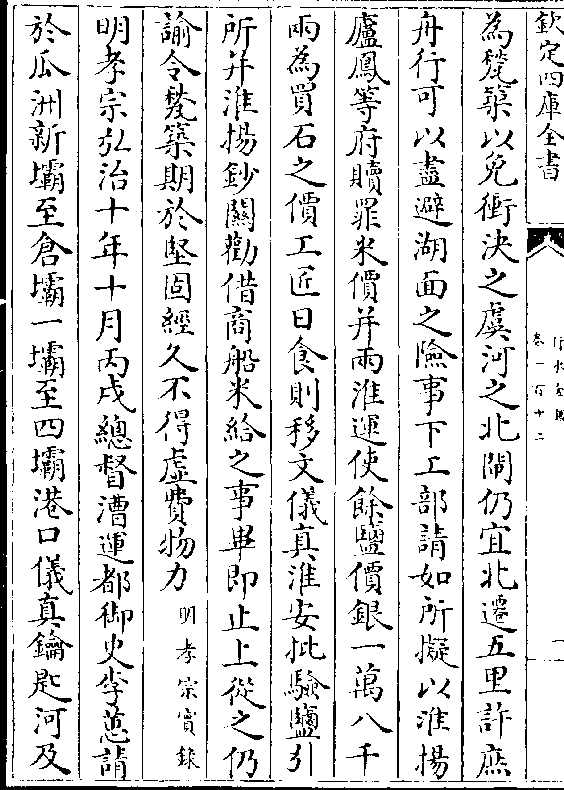 欽定四庫全書
行水金鑑
卷一百十二
為甃築以免衝決之虞河之北閘仍宜北遷五里許庶
舟行可以盡避湖面之險事下工部請如所擬以淮揚
廬鳳等府贖罪米價并兩淮運使餘鹽價銀一萬八千
兩為買石之價工匠日食則移文儀真淮安批驗鹽引
所并淮揚鈔關勸借商船米給之事畢即止上從之仍
諭令甃築期於堅固經久不得虛費物力明孝宗實錄
明孝宗弘治十年十月丙戌總督漕運都御史李蕙請
於瓜洲新壩至倉壩一壩至四壩港口儀真鑰匙河及